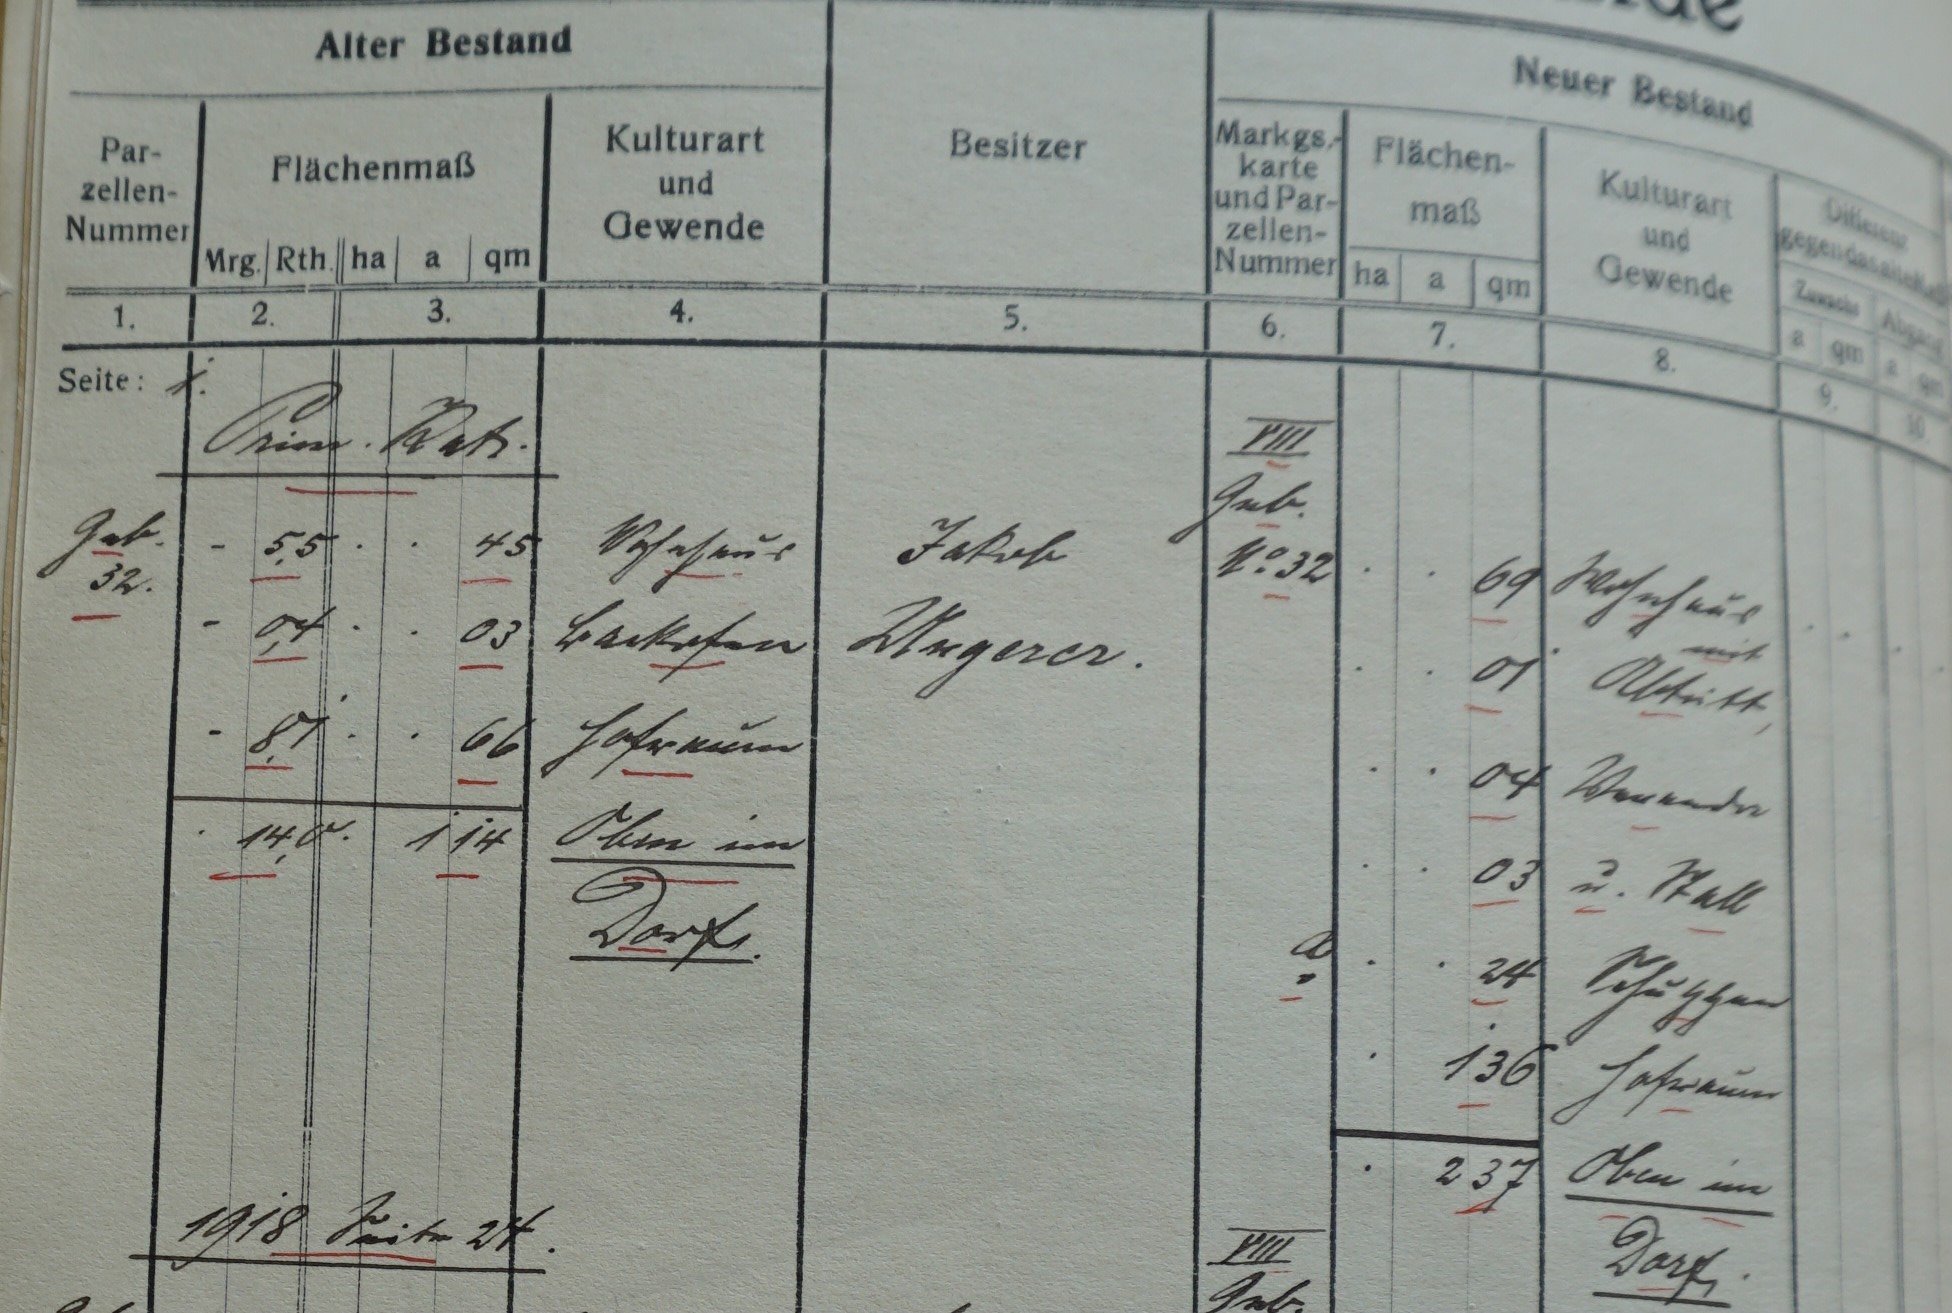 Alter Bestand
Neuer Bestand
Par-
zellen-
Nummer
Flächenmaß
Mrg. Rth. ha a qm
Kulturart
und
Gewende
Besitzer
Markgs.-
karte
und Par-
zellen-
Nummer
Flächen-
maß
ha a qm
Kulturart
und
Gewende
Differenz
Zuwachs Abgang
a qm a qm
1. 2. 3. 4. 5. 6. 7. 8. 9. 10.
Seite: 1.
Prim. Kat.
VIII
Geb.
Geb. - 5,5 . . 45 Wohnhaus Jakob No 32 . . 69 Wohnhaus
32.
mit
- 0,4 . . 03 Backofen Ungerer. . . 01 Abtritt,
- 8,1 . . 66 Hofraum . . 04 Veranda
. 14,0. 1 14 Oben im . . 03 u. Stall
Dorf.
a . . 24 Schuppen
. 1 36 Hofraum
. 2 37 Oben im
Dorf.
1918 Seite 24.
VIII
Geb.